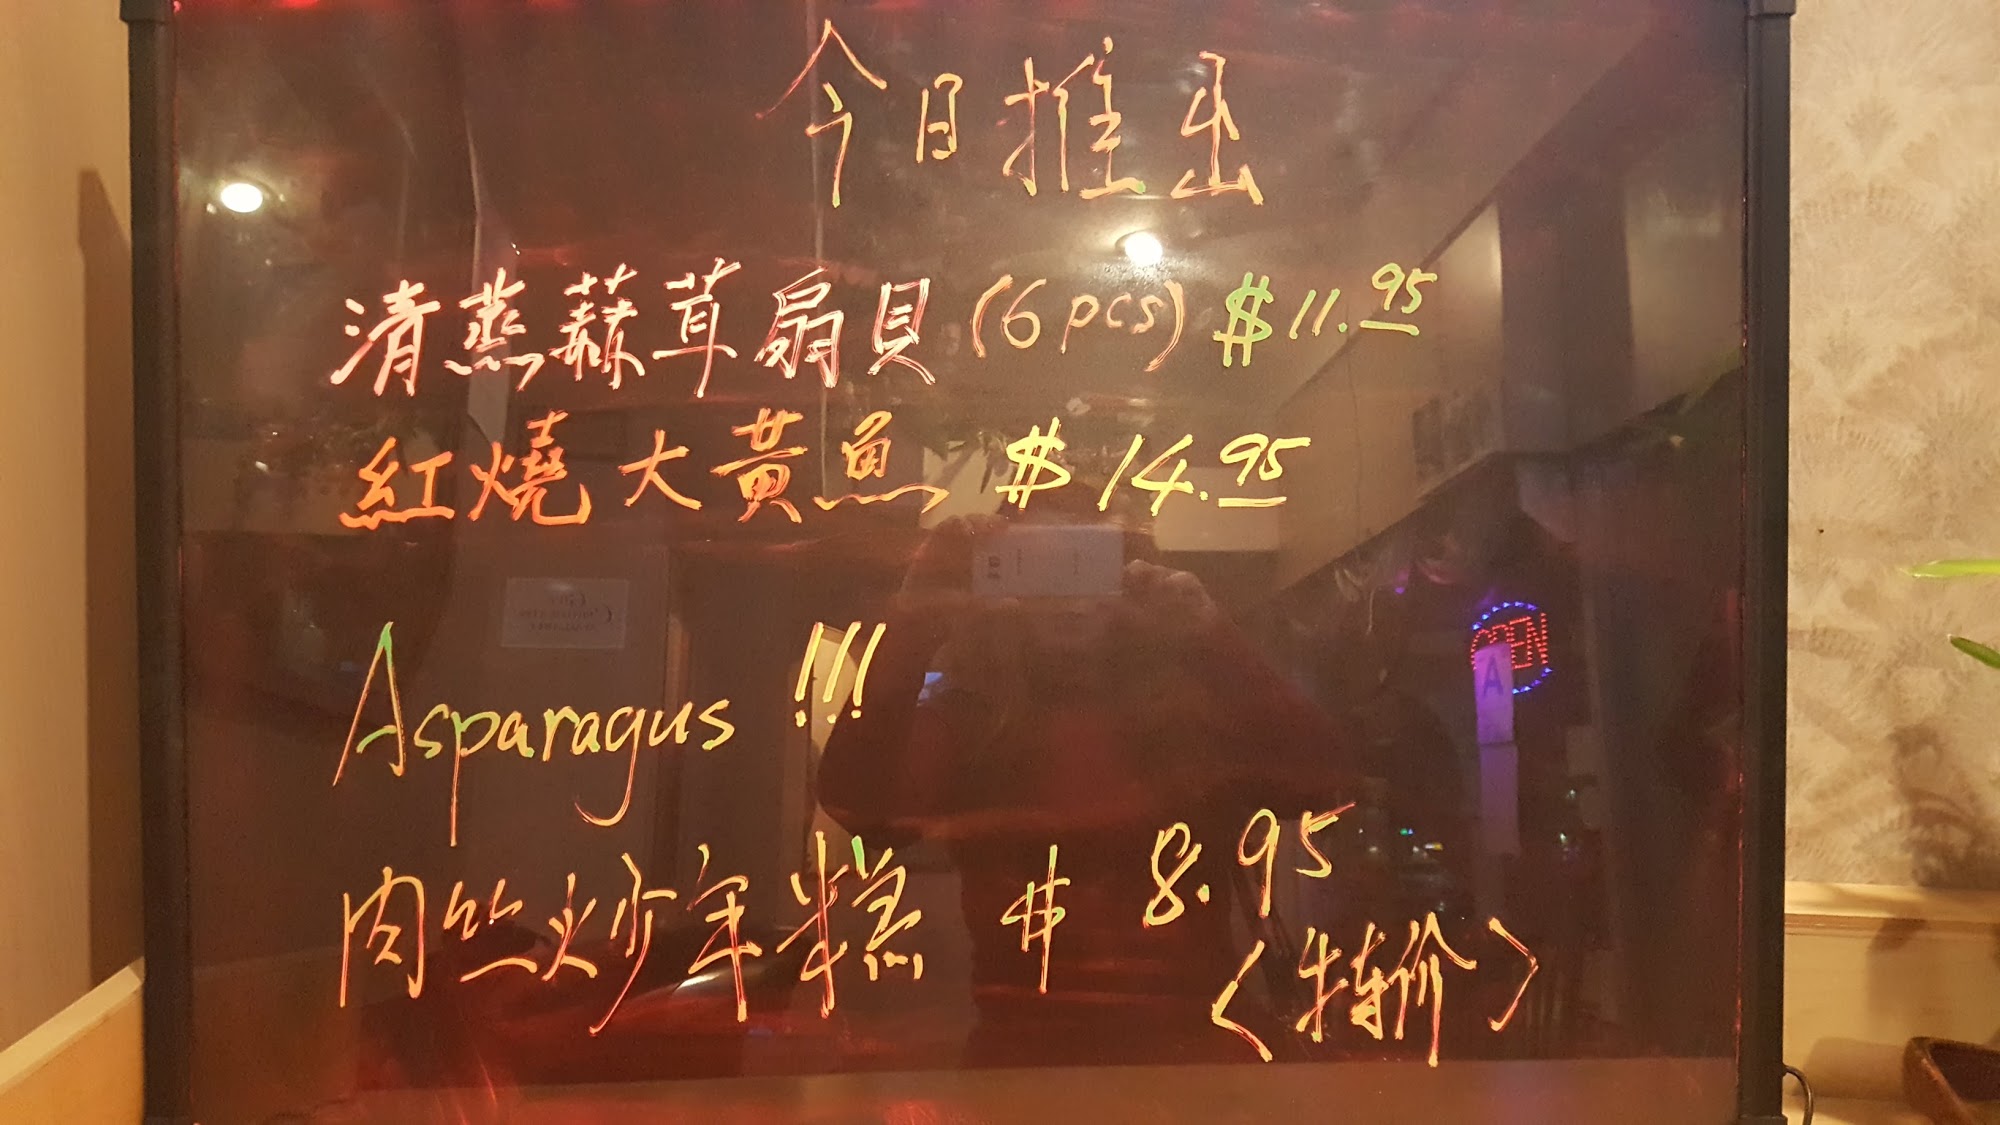 今日推出
清蒸蒜茸扇貝(6pcs) $11.95
紅燒大黃魚 $14.95
Asparagus !!!
肉丝炒年糕 $8.95
<特价>
OPEN
A